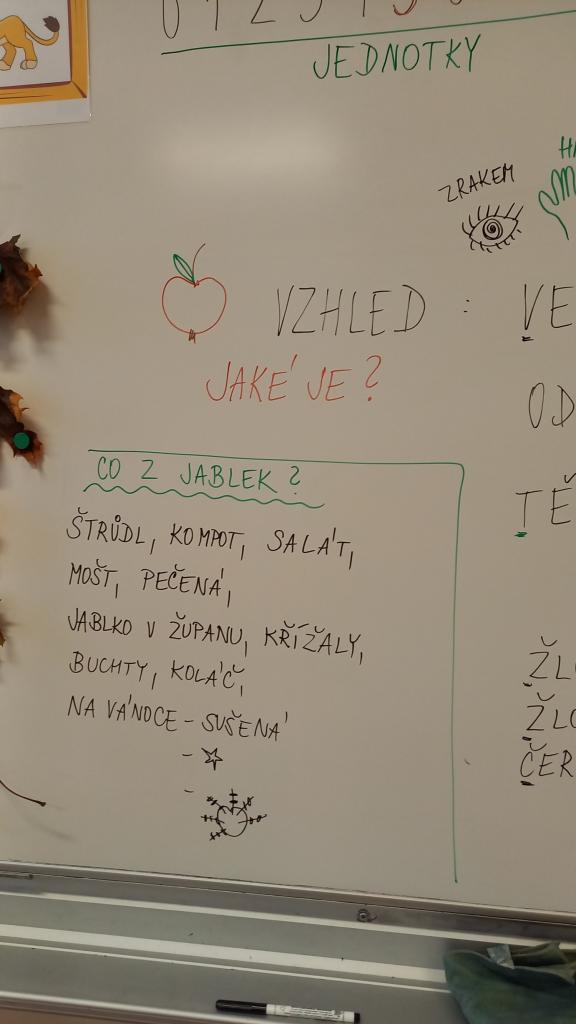 JEDNOTKY
ZRAKEM
VZHLED :
JAKÉ JE?
CO Z JABLEK?
ŠTRŮDL, KOMPOT, SALÁT,
MOŠT, PEČENÁ,
JABLKO V ŽUPANU, KŘÍŽALY,
BUCHTY, KOLÁČ,
NA VÁNOCE - SUŠENÁ
-
-